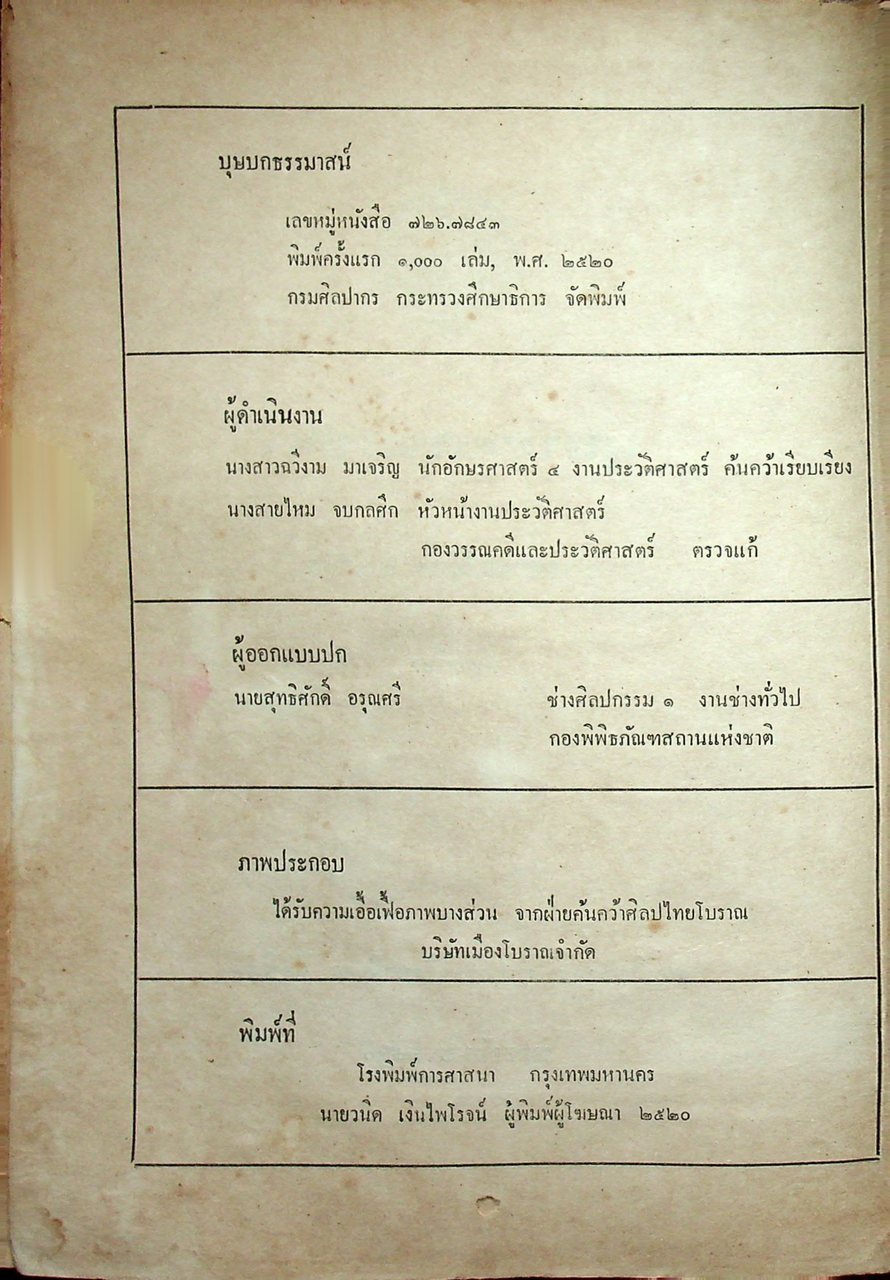 บุษบกธรรมาสน์
เลขหมู่หนังสือ ๗๒๖.๗๘๔๓
พิมพ์ครั้งแรก ๑,๐๐๐ เล่ม, พ.ศ. ๒๕๒๐
กรมศิลปากร กระทรวงศึกษาธิการ จัดพิมพ์
ผู้ดำเนินงาน
นางสาวฉวีงาม มาเจริญ นักอักษรศาสตร์ ๔ งานประวัติศาสตร์ ค้นคว้าเรียบเรียง
นางสายไหม จบกลศึก หัวหน้างานประวัติศาสตร์
กองวรรณคดีและประวัติศาสตร์ ตรวจแก้
ผู้ออกแบบปก
นายสุทธิศักดิ์ อรุณศรี ช่างศิลปกรรม ๑ งานช่างทั่วไป
กองพิพิธภัณฑสถานแห่งชาติ
ภาพประกอบ
ได้รับความเอื้อเฟื้อภาพบางส่วน จากฝ่ายค้นคว้าศิลปไทยโบราณ
บริษัทเมืองโบราณจำกัด
พิมพ์ที่
โรงพิมพ์การศาสนา กรุงเทพมหานคร
นายวนิด เงินไพโรจน์ ผู้พิมพ์ผู้โฆษณา ๒๕๒๐